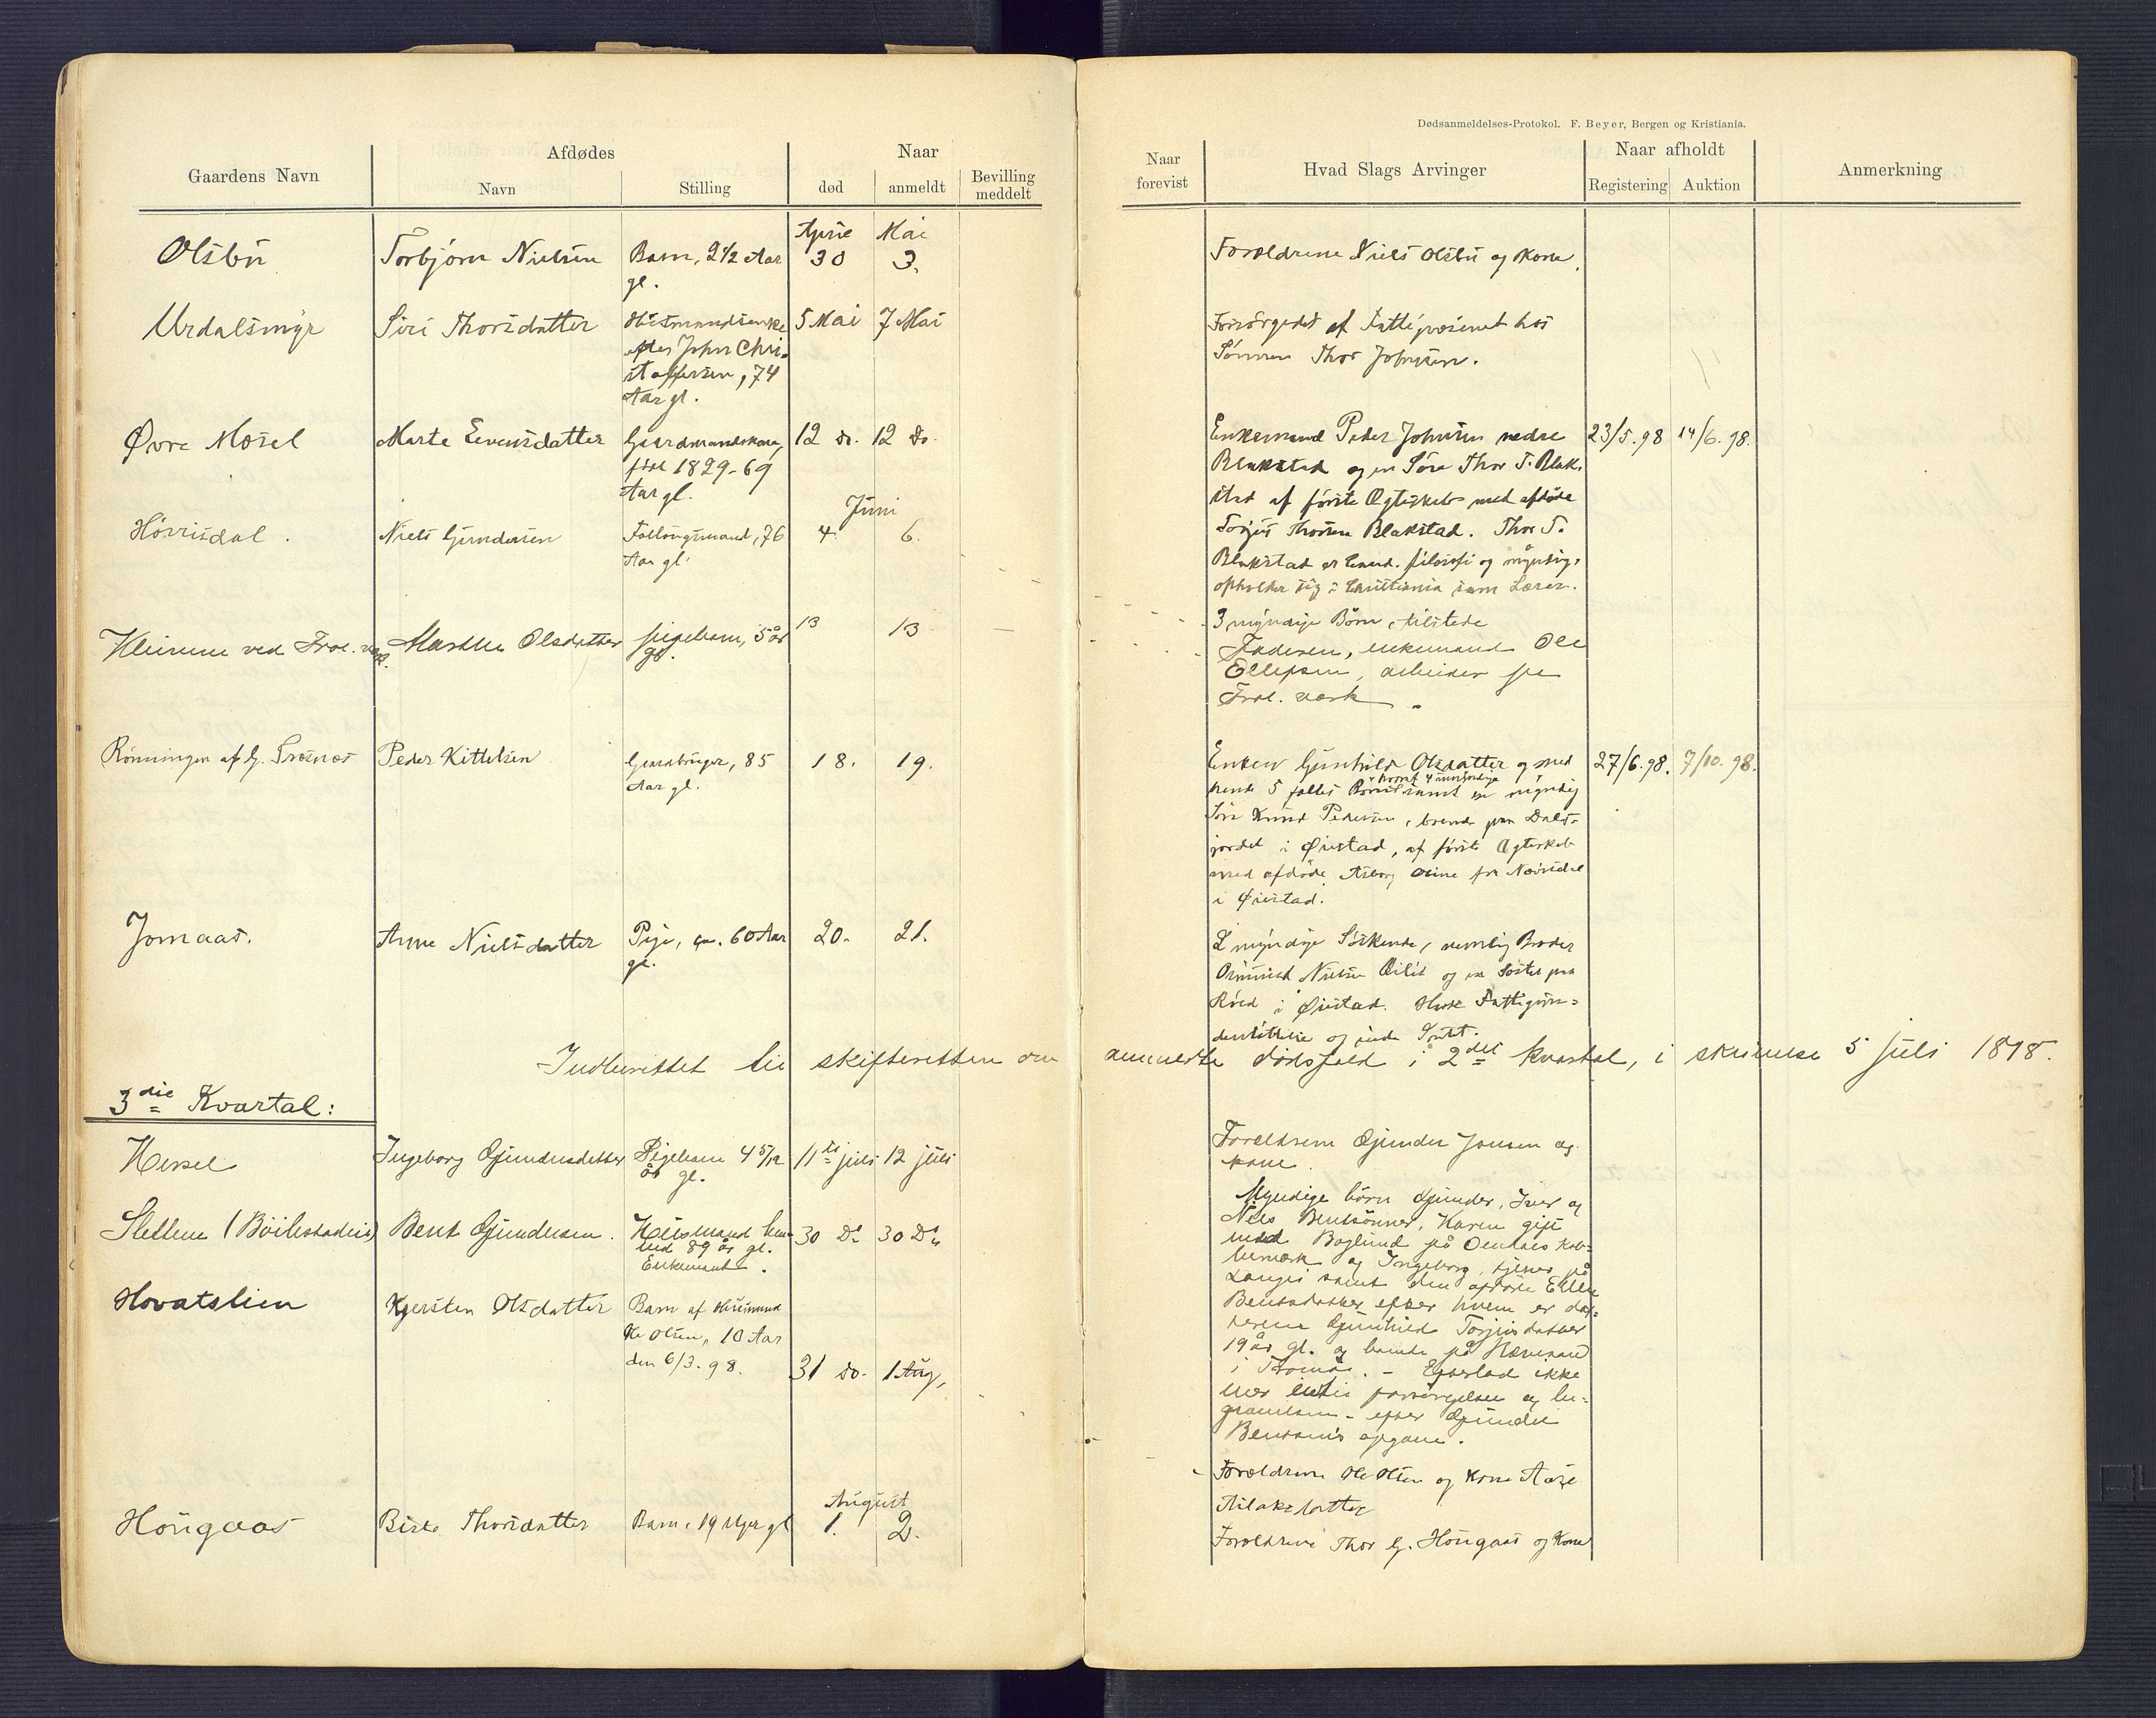 Dødsanmeldelses-Protokol. F. Beyer, Bergen og Kristiania.
Gaardens Navn
Afdødes
Navn
Stilling
Naar
død
anmeldt
Bevilling
meddelt
Naar
forevist
Hvad Slags Arvinger
Naar afholdt
Registering
Auktion
Anmerkning
Olsbu
Torbjørn Nielsen
Barn, 2 1/2 Aar
gl.
April
30
Mai
3.
Forældrene Niels Olsbu og Kone.
Urdalsmyr
Siri Thorsdatter
Husmandsenke
efter John Chri-
stoffersen, 74
Aar gl.
5 Mai
7 Mai
Forsørgedes af Fattigvæsenet hos
Sønnen Thor Johnsen.
Øvre Mæsel
Marte Evensdatter
Gaardmandskone,
født 1829-69
Aar gl.
12 do.
12 do.
Enkemand Peder Johnsen nedre
Blakstad og en Søn Thor T. Blak-
stad af første Ægteskab med afdøde
Torjus Thorsen Blakstad. Thor T.
Blakstad er filosofi og myndig,
opholder sig i Christiania som Lærer.
23/5.98
14/6.98.
Hørrisdal.
Niels Gundersen
Follougsmand, 76
Aar gl.
Juni
4.
6.
3 myndige Børn, tilstede
Heimene ved Frol. verk.
Marthe Olsdatter
pigebarn, 5 år
gl.
13
13
Faderen, enkemand Ole
Ellefsen, arbeider på
Frol. værk.
Rønningen af G. Trøsnæs
Peder Kittelsen
Gaardbruger, 85
Aar gl.
18.
19.
Enken Gunhild Olsdatter og med
hende 5 fælles Børn samt en myndig
hvoraf 4 umyndige
Søn Knud Pedersen, boende paa Dals-
jordet i Øiestad, af første Ægteskab
med afdøde Asborg Osine fra Nævisdal
i Øiestad.
27/6.98.
7/10.98.
Jomaas.
Anne Nielsdatter
Pige, ca. 60 Aar
gl.
20.
21.
2 myndige Søskende, nemlig Broder
Osmund Nielsen og en Søster paa
Røed i Øiestad. Havde Fattigun-
derstøttelse og intet
Indberettet til skifteretten om anmeldte dødsfald i 2det kvartal, i skrivelse 5 juli 1898.
3die Kvartal:
Hessel
Ingeborg Gjundersdatter
Pigebarn 4 5/12
år gl.
11te juli
12 juli
Forældrene Gjunder Jonsen og
kone.
Slettene (Bøilestadeie)
Bent Gjundersen.
Husmand
89 år gl.
Enkemand.
30 Do
30 Do
Myndige børn Gjunder, Iver og
Niels Bentsønner, Karen gift
med Boglund på
og Ingeborg, tjener på
Langei samt den afdøde Ellen
Bentsdatter efter hvem er dat-
teren Gunhild Torjusdatter
19 år gl. og boende på
i Tromø. - Efterlod ikke
mer end til forsørgelsen og be-
gravelsen - efter Gjunder
Bentsens opgave.
Hovatslien
Kjersten Olsdatter
Barn af Husmand
Ole Olsen, 10 Aar
den 6/3.98.
31 do.
1 Aug,
Forældrene Ole Olsen og Kone Aase
Aslaksdatter
Hougaas
Birte Thorsdatter
Barn, 19 Uger gl
August
1.
2.
Forældrene Thor G. Hougaas og Kone